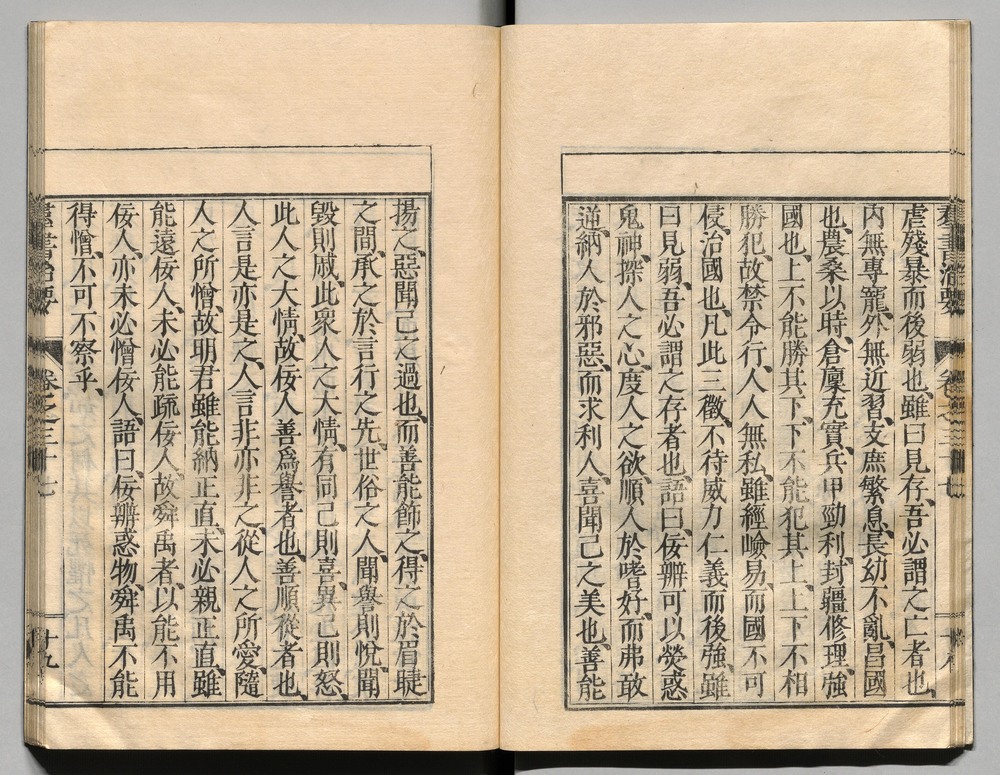 羣書治要 卷之三十七
虐殘暴而後弱也、雖曰見存、吾必謂之亡者也、
內無專寵、外無近習、支庶繁息、長幼不亂、昌國
也、農桑以時、倉廩充實、兵甲勁利、封疆修理、強
國也、上不能勝其下、下不能犯其上、上下不相
勝犯、故禁令行、人人無私、雖經嶮易、而國不可
侵、治國也、凡此三徵、不待威力仁義而後強、雖
曰見弱、吾必謂之存者也、語曰、佞辨可以熒惑
鬼神、探人之心、度人之欲、順人於嗜好、而弗敢
逆、納人於邪惡、而求利人、喜聞己之美也、善能
揚之、惡聞己之過也、而善能飾之、得之於眉睫
之間、承之於言行之先、世俗之人、聞譽則悅、聞
毀則戚、此衆人之大情、有同己則喜、異己則怒、
此人之大情、故佞人善爲譽者也、善順從者也、
人言是亦是之、人言非亦非之、從人之所愛、隨
人之所憎、故明君雖能納正直、未必親正直、雖
能遠佞人、未必能疏佞人、故舜禹者、以能不用
佞人、亦未必憎佞人、語曰、佞辨惑物、舜禹不能
得憎、不可不察乎、
羣書治要 卷之三十七 十九